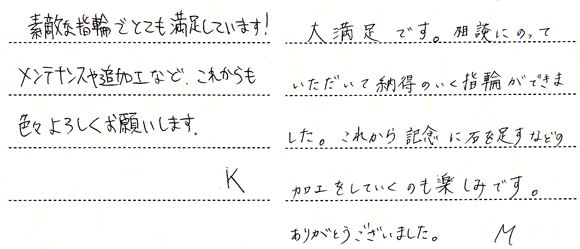 素敵な指輪でとても満足しています!
メンテナンスや追加工など、これからも
色々よろしくお願いします。
K
大満足です。相談にのって
いただいて納得のいく指輪ができま
した。これから記念に石を足すなどの
加工をしていくのも楽しみです。
ありがとうございました。 M